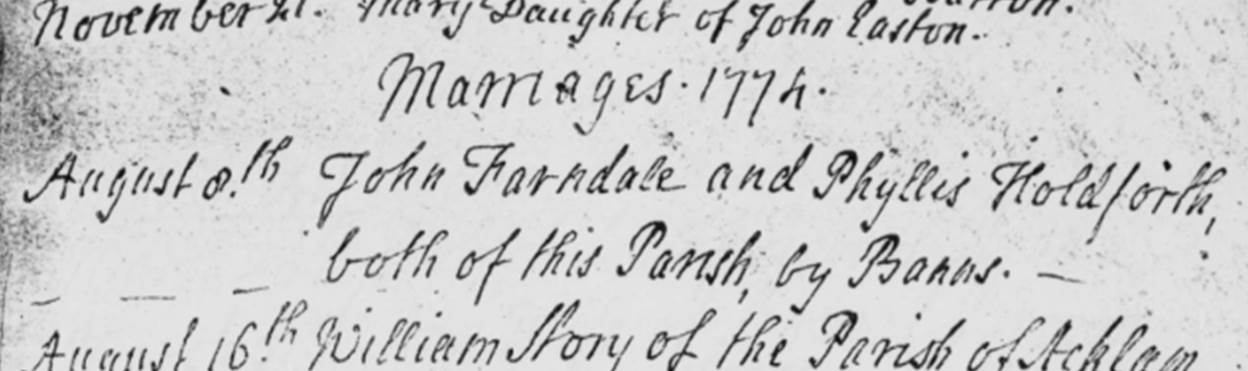 November 21. Mary Daughter of John Easton.
Marriages. 1774.
August 8.th John Farndale and Phyllis Holdforth,
both of this Parish, by Banns. —
August 16.th William Story of the Parish of Acklam